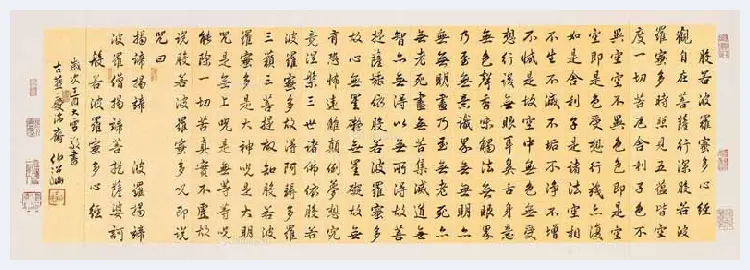 般若波羅蜜多心經
觀自在菩薩行深般若波
羅蜜多時照見五蘊皆空
度一切苦厄舍利子色不
異空空不異色色即是空
空即是色受想行識亦復
如是舍利子是諸法空相
不生不滅不垢不淨不增
不減是故空中無色無受
想行識無眼耳鼻舌身意
無色聲香味觸法無眼界
乃至無意識界無無明亦
無無明盡乃至無老死亦
無老死盡無苦集滅道無
智亦無得以無所得故菩
提薩埵依般若波羅蜜多
故心無罣礙無罣礙故無
有恐怖遠離顛倒夢想究
竟涅槃三世諸佛依般若
波羅蜜多故得阿耨多羅
三藐三菩提故知般若波
羅蜜多是大神咒是大明
咒是無上咒是無等等咒
能除一切苦真實不虛故
說般若波羅蜜多咒即說
咒曰
揭諦揭諦 波羅揭諦
波羅僧揭諦菩提薩婆訶
般若波羅蜜多心經
歲次酉大雪敬書